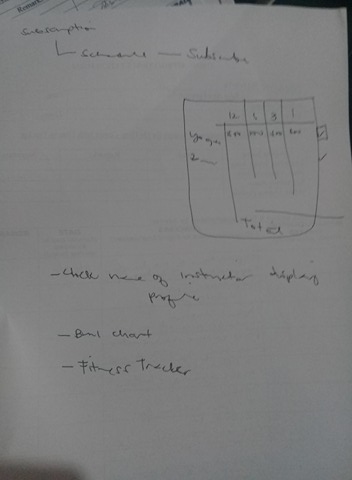 Remark
subscription
schedule — Subscribe
12 3 1
Yoga
2
Total
- Click name of instructor display
profile
- Bmi chart
- Fitness Tracker